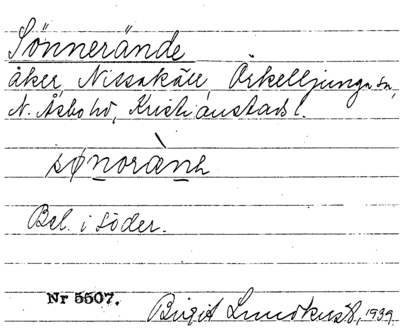 Sönnerände
åker, Nissakäll, Örkelljunga sn,
N. Åsbo hd, Kristianstads l.
sønorànə
Bel. i söder.
Nr 5507.
Birgit Lundkvist, 1939